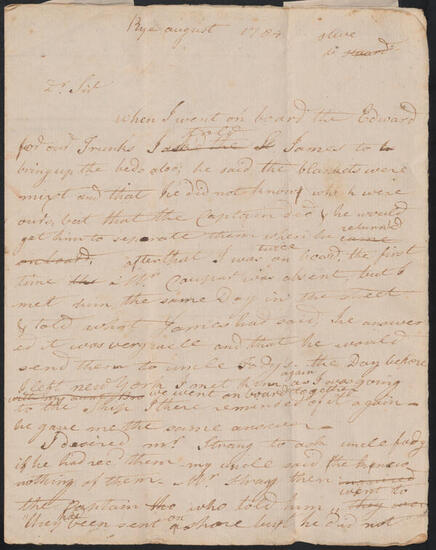 Rye august 1784
Dr Sir
when I went on board the Edward
for our Trunks I told James to
bring up the beds also; he said the blankets were
mixt and that he did not know which were
ours, but that the Captain did & he would
get him to separate them when he returned
came
on board. after that I was twice on board, the first
time Mr was absent, but I
met him the same Day in the street
& told what James had said, he answer
ed it was very well and that he would
send them to uncle Jadys. the Day before
I left new York I met him again as I was going
with my aunt we went on board together
to the Ship I there reminded of it again —
he gave me the same answer —
I desired mr Strang to ask uncle
if he had recd them my uncle said he knew
nothing of them. Mr Strang then inquired
went to
the Captain who told him they
They had been sent on shore but he did not